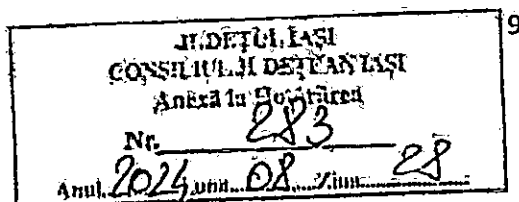 JUDEŢUL IAŞI
CONSILIUL JUDEŢEAN IAŞI
Anexă la Hotărârea
Nr. 283
Anul 2024 luna 08 ziua 28
9